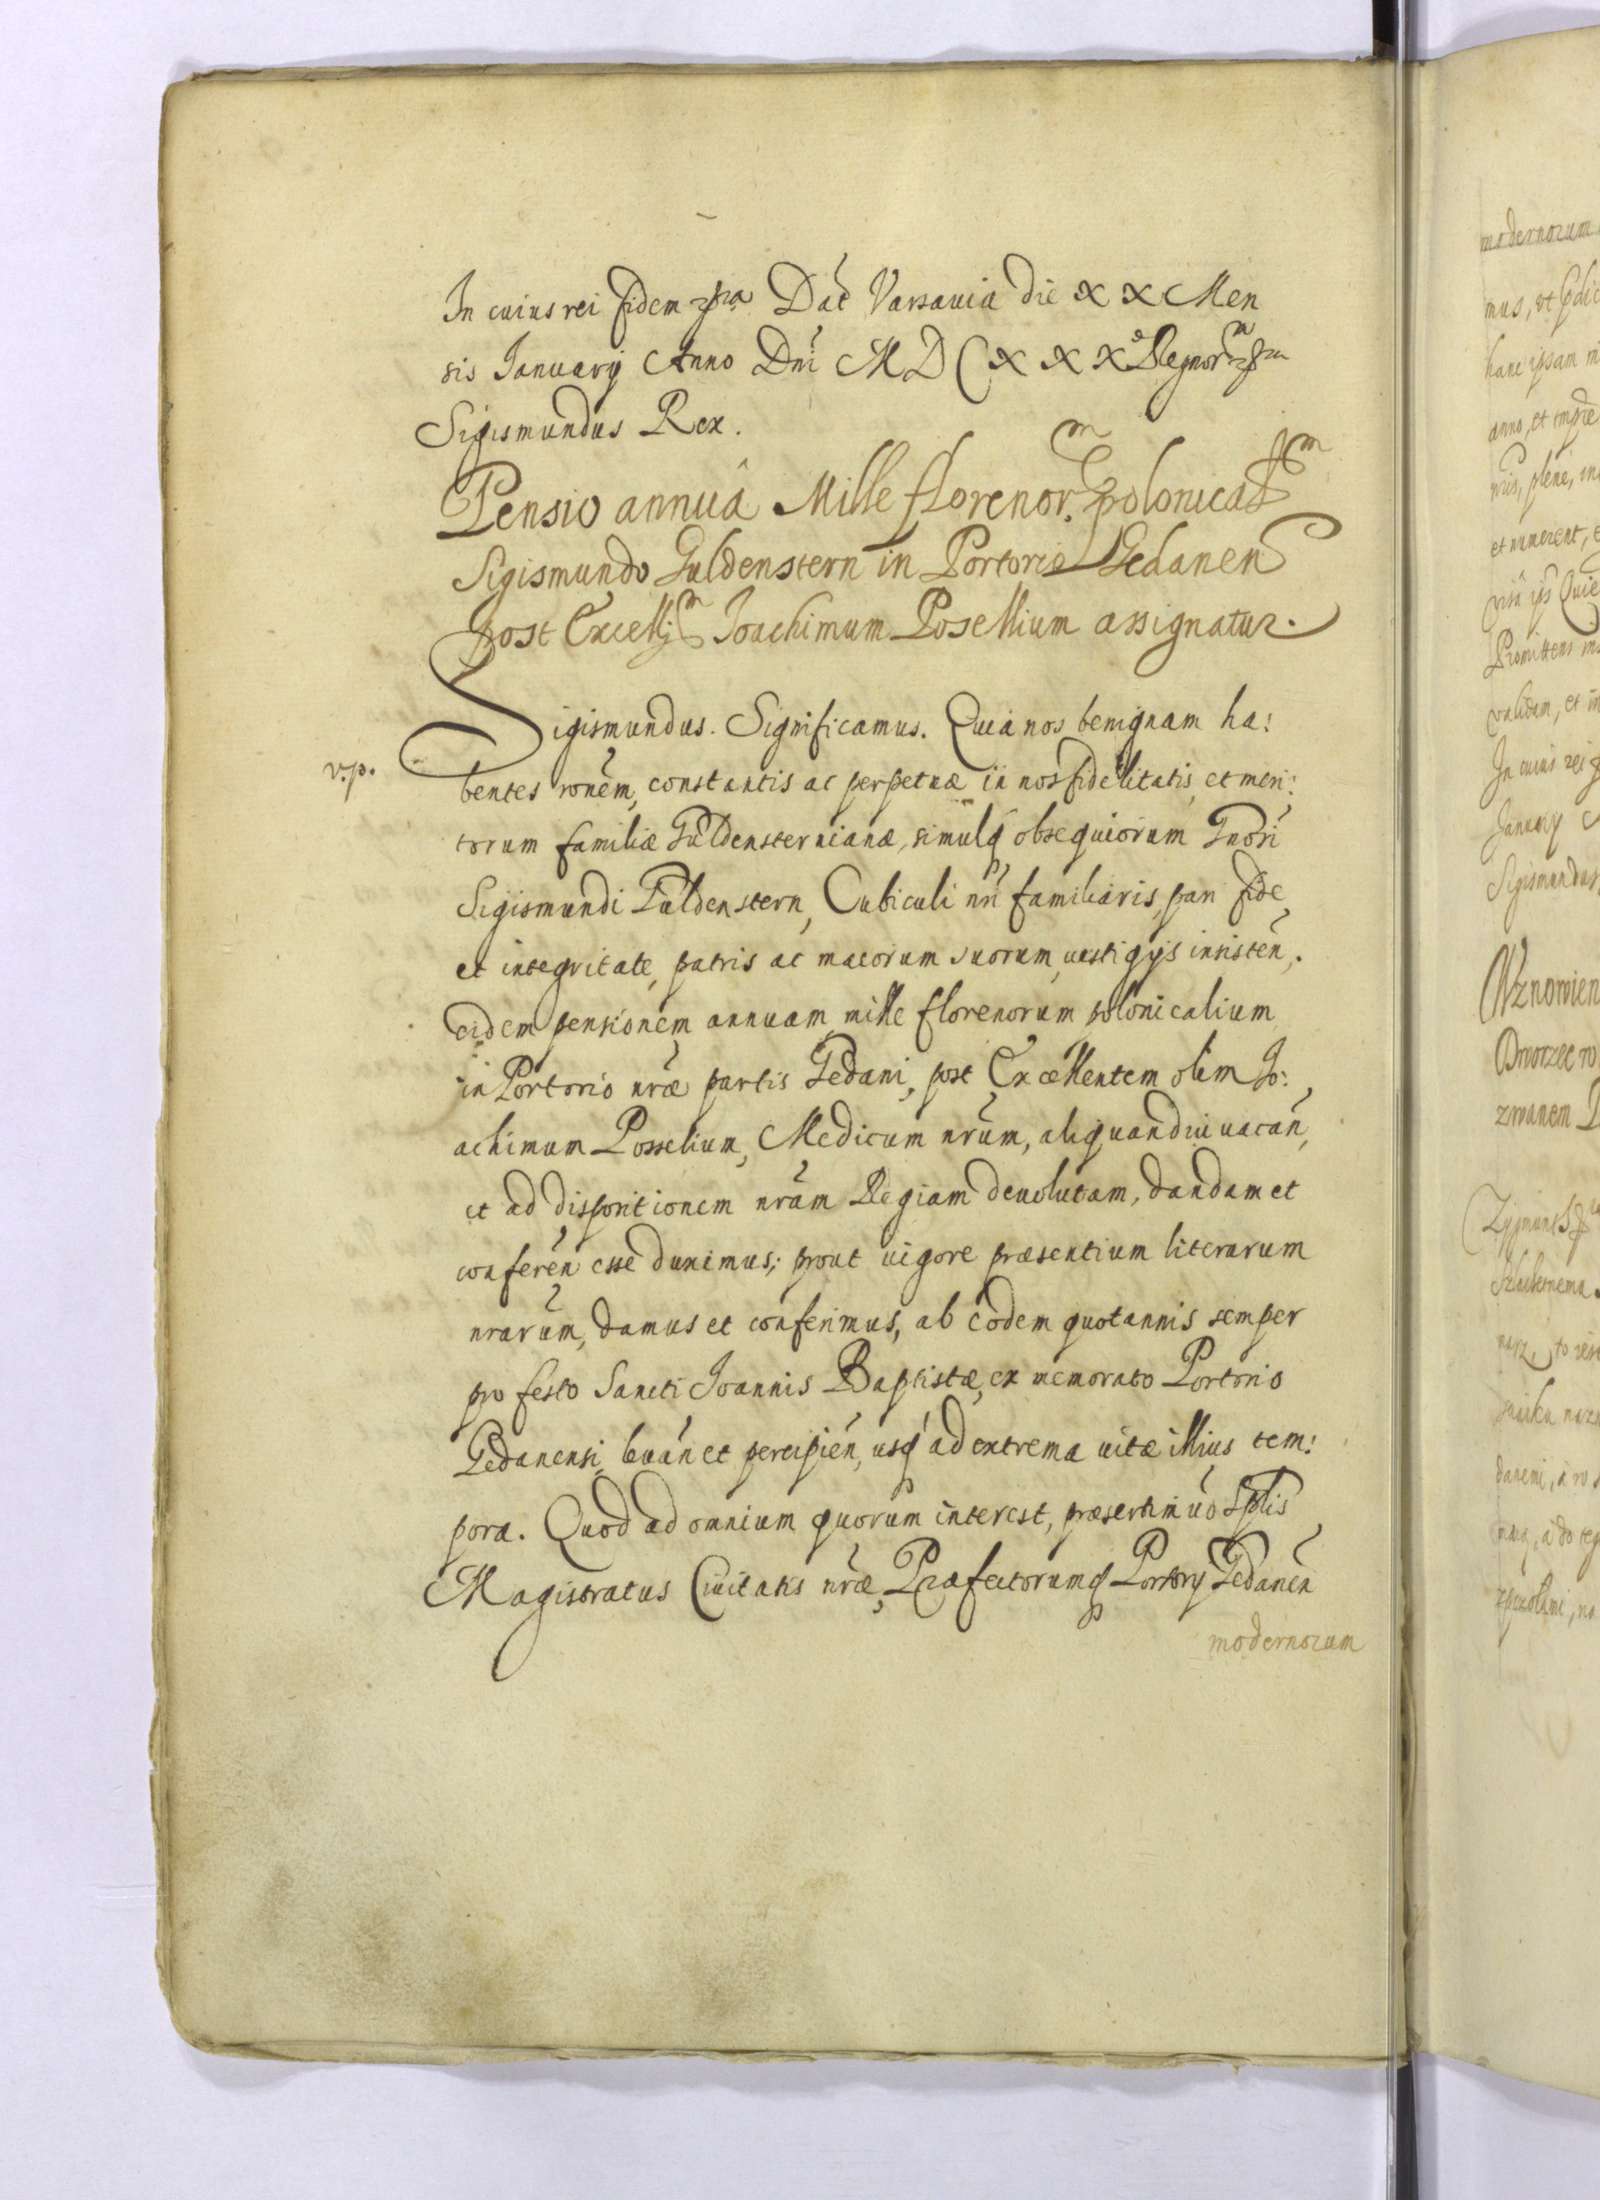 In cuius rei fidem &c̃a Dat̃ Varsauiæ die XX Men
sis Januarij Anno Dñi MDCXXX°. Regnor̃
Sigismundus Rex.
Pensio annua Mille florenor̃. polonical
Sigismundo Guldenstern in Portorio Gedanen
post Excell Joachimum Posellium assignatur.
v.p.
Sigismundus. Significamus. Quia nos benignam ha:
bentes rõnem, constantis ac perpetuæ in nos fidelitatis, et meri:
torum familiæ Guldensternianæ, simulq́ obsequiorum Gnõsi
Sigismundi Guldenstern, Cubiculi nr̃i familiaris, pari fide
et integritate, patris ac maiorum suorum, uestigijs insisteñ,.
eidem pensionem annuam mille florenorum polonicalium
in Portorio nr̃æ partis Gedani, post Excellentem olim Jo:
achimum Posselium, Medicum nr̃um, aliquandiu uacañ,
et ad dispositionem nr̃am Regiam deuolutam, dandam et
confereñ esse duximus; prout uigore præsentium literarum
nr̃arum, damus et conferimus, ab eodem quotannis semper
pro festo Sancti Joannis Baptistæ, ex memorato Portorio
Gedanensi, leuañ et percipieñ, usq́ ad extrema uitæ illius tem:
pora. Quod ad omnium quorum interest, præsertim uõ Spl̃is
Magistratus Ciuitatis nr̃æ, Præfectorumq́ Portorij Gedaneñ
modernorum
modernorum
mus, ut
hanc ipsam
anno, et
plene,
et numerent,
Promittens
validam, et
In cuius rei
Januarij
Sigismundus
Wznowien
Dworzec
zwanem
Zygmunt